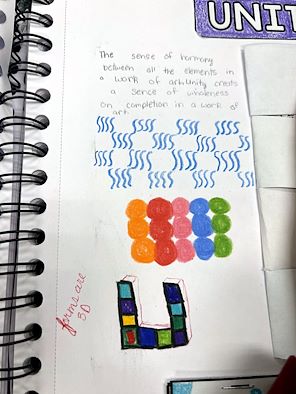 UNIT
The sense of harmony
between all the elements in
a work of art. Unity creats
a sence of wholeness
on completion in a work of
art
forms are
3D